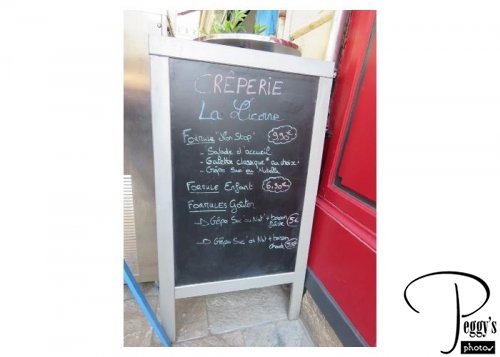 CRÊPERIE
La Licorne
Formule "Non Stop" 9,90€
- Salade d'accueil
- Galette classique* au choix
- Crêpe Suc ou Nutella
Formule Enfant 6,90€
Formules Goûter
Crêpe Suc ou Nut + boisson 5€
Crêpe Suc et Nut + boisson
chaude
Peggy's
photos